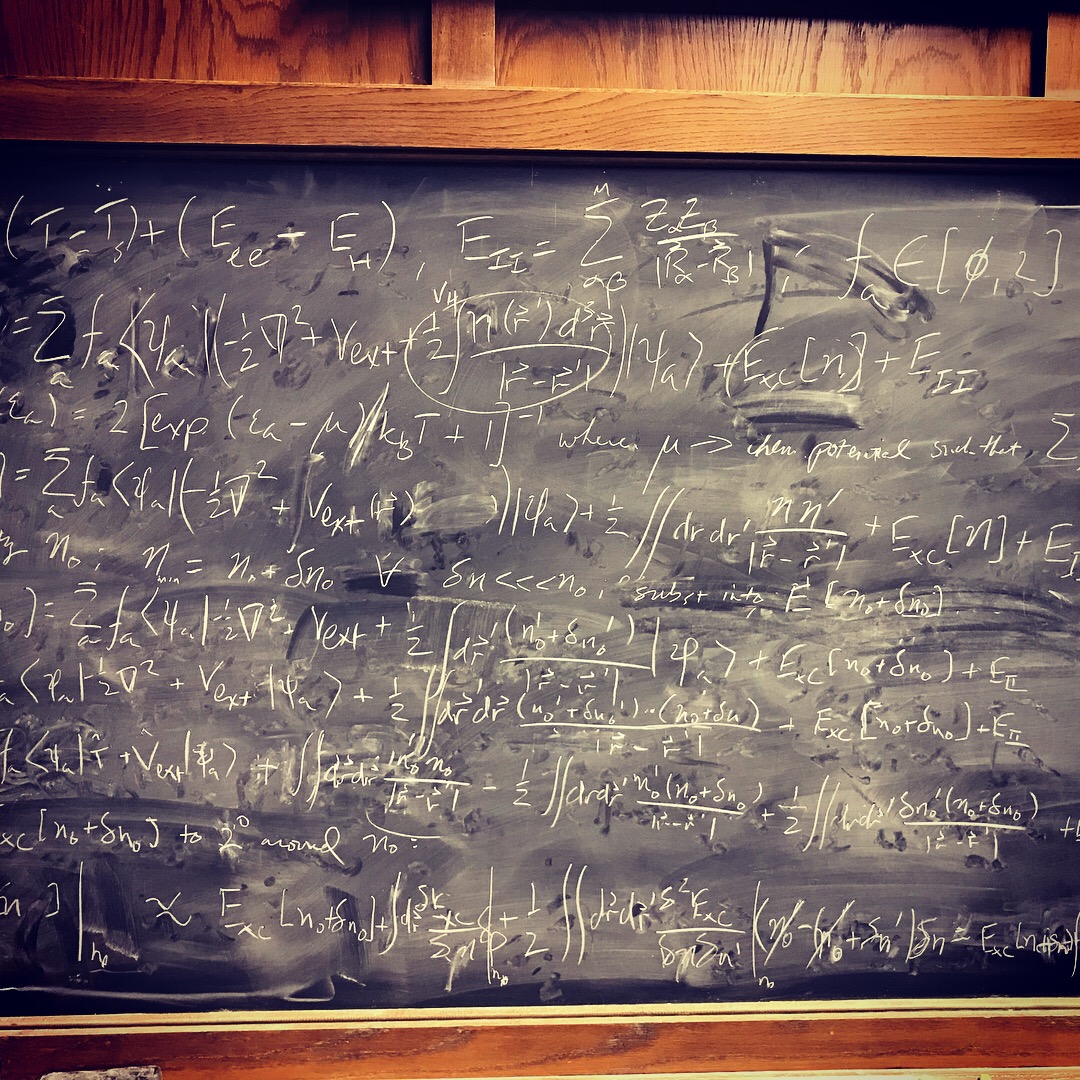 (T - T_s) + (E_ee - E_H), E_II = Σ_αβ^M Z_α Z_β / |R⃗_α - R⃗_β| ; f_a ∈ [ϕ, 2]
= Σ_a f_a ⟨ψ_a|(-½∇² + V_ext + ½∫ n(r⃗')d³r⃗' / |r⃗ - r⃗'|)|ψ_a⟩ + E_xc[n] + E_II
V_H
(ε_a) = 2[exp (ε_a - μ)/k_B T + 1]^-1 where μ → chem potential such that Σ
] = Σ_a f_a ⟨ψ_a|(-½∇² + V_ext(r⃗))|ψ_a⟩ + ½ ∬ dr dr' n n' / |r⃗ - r⃗'| + E_xc[n] + E_I
n_0 ; n_min = n_0 + δn_0 ∀ δn <<< n_0 ; subst into E [n_0 + δn_0]
_0) = Σ_a f_a ⟨ψ_a|-½∇² + V_ext + ½ ∫ dr⃗' (n_0' + δn_0') / |r⃗ - r⃗'| |ψ_a⟩ + E_xc[n_0 + δn_0] + E_II
_a ⟨ψ_a|-½∇² + V_ext|ψ_a⟩ + ½ ∬ dr⃗ dr⃗' (n_0' + δn_0')·(n_0 + δn) / |r⃗ - r⃗'| + E_xc[n_0 + δn_0] + E_II
f_a ⟨ψ_a|T̂ + V̂_ext|ψ_a⟩ + ∬ dr⃗ dr⃗' n_0' n_0 / |r⃗ - r⃗'| - ½ ∬ dr dr' n_0'(n_0 + δn_0) / |r⃗ - r⃗'| + ½ ∬ dr dr' δn_0'(n_0 + δn_0) / |r⃗ - r⃗'| +
xc [n_0 + δn_0] to 2° around n_0 :
n ]|_n_0 ∝ E_xc [n_0 + δn_0] + ∫ dr⃗ δE_xc / δn |_n_0 + ½ ∬ dr⃗ dr⃗' δ²E_xc / δnδn' |_n_0 (n_0 - (n_0 + δn')) δn = E_xc [n